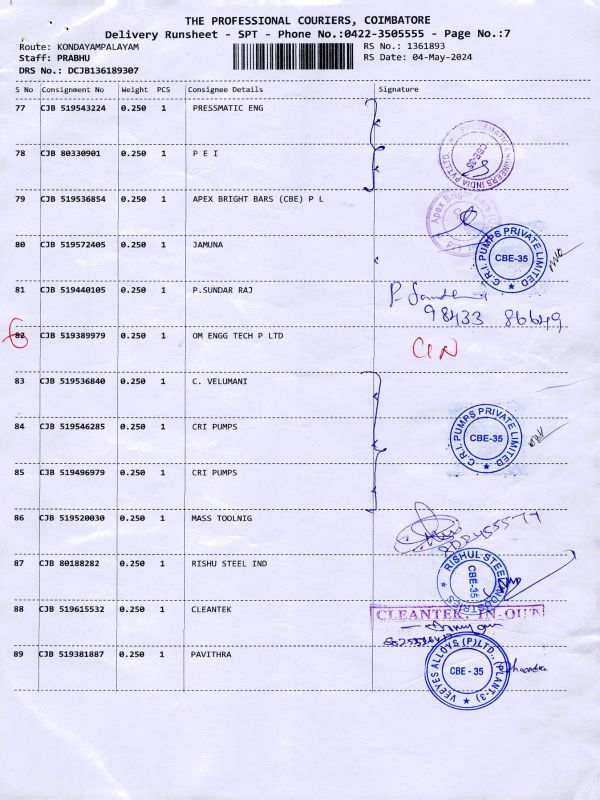 THE PROFESSIONAL COURIERS, COIMBATORE
Delivery Runsheet - SPT - Phone No.:0422-3505555 - Page No.:7
Route: KONDAYAMPALAYAM
RS No.: 1361893
Staff: PRABHU
RS Date: 04-May-2024
DRS No.: DCJB136189307
S No Consignment No Weight PCS Consignee Details Signature
77 CJB 519543224 0.250 1 PRESSMATIC ENG
78 CJB 80330901 0.250 1 P E I
CBE-35
79 CJB 519536854 0.250 1 APEX BRIGHT BARS (CBE) P L
80 CJB 519572405 0.250 1 JAMUNA
C.R.I. PUMPS PRIVATE LIMITED
CBE-35
81 CJB 519440105 0.250 1 P.SUNDAR RAJ
98433 86649
82 CJB 519389979 0.250 1 OM ENGG TECH P LTD
CIN
83 CJB 519536840 0.250 1 C. VELUMANI
84 CJB 519546285 0.250 1 CRI PUMPS
C.R.I. PUMPS PRIVATE LIMITED
CBE-35
85 CJB 519496979 0.250 1 CRI PUMPS
86 CJB 519520030 0.250 1 MASS TOOLNIG
87 CJB 80188282 0.250 1 RISHU STEEL IND
RISHUL STEEL INDUSTRIES
CBE-35
88 CJB 519615532 0.250 1 CLEANTEK
CLEANTEK, IN-OUT
89 CJB 519381887 0.250 1 PAVITHRA
VEEYES ALLOYS (P) LTD., (PLANT-3)
CBE - 35